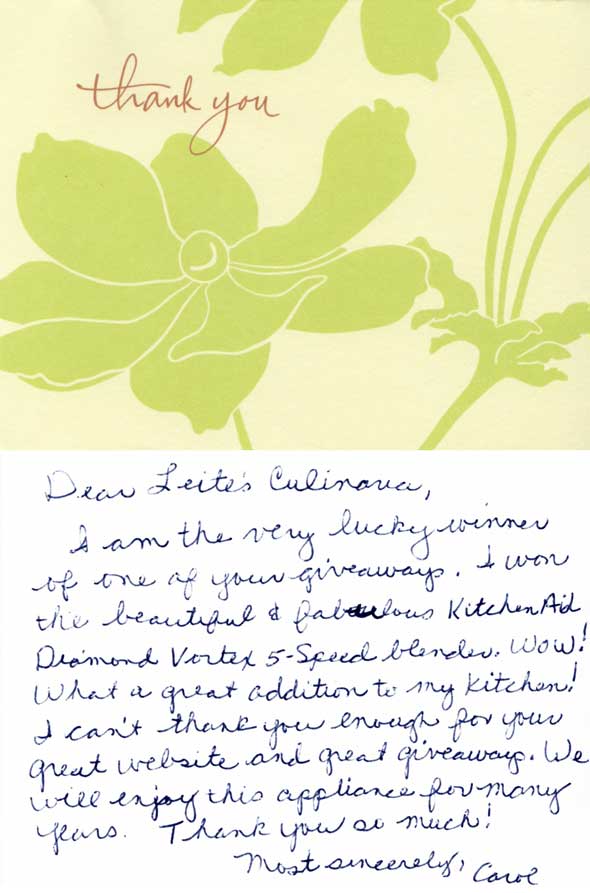 thank you
Dear Leite's Culinaria,
I am the very lucky winner
of one of your giveaways. I won
the beautiful & fabulous KitchenAid
Diamond Vortex 5-Speed blender. Wow!
What a great addition to my kitchen!
I can't thank you enough for your
great website and great giveaways. We
will enjoy this appliance for many
years. Thank you so much!
Most sincerely,
Carol